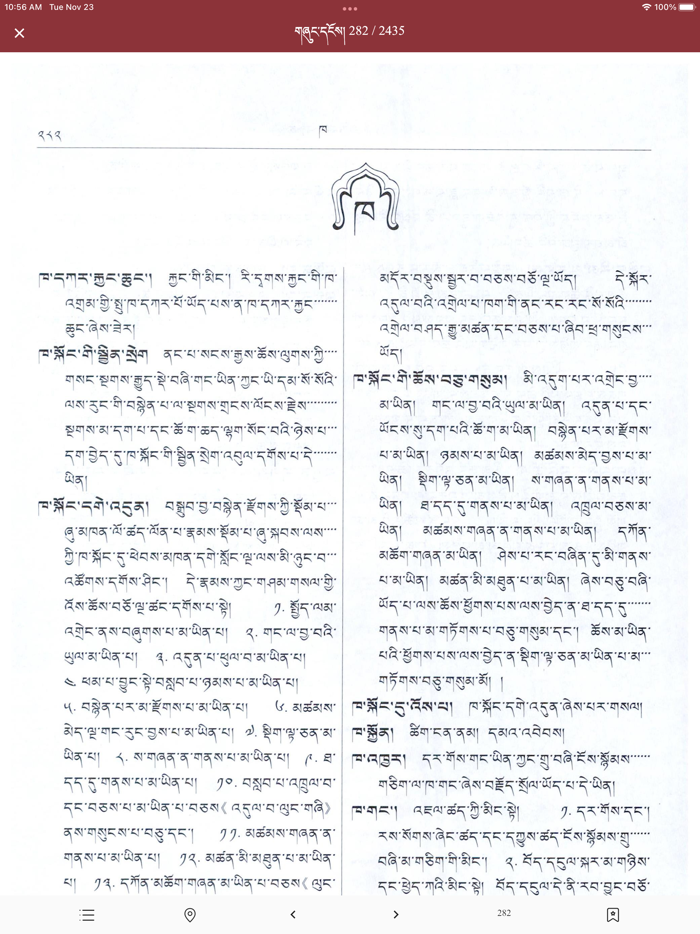 10:56 AM Tue Nov 23
100%
གཞུང་དངོས། 282 / 2435
༢༨༢
ཁ
ཁ
ཁ་དཀར་རྐྱང་ཆུང་། རྐྱང་གི་མིང་། རི་དྭགས་རྐྱང་གི་ཁ་
འགྲམ་གྱི་སྤུ་ཁ་དཀར་པོ་ཡོད་པས་ན་ཁ་དཀར་རྐྱང་……
ཆུང་ཞེས་ཟེར།
ཁ་སྐོང་གི་སྦྱིན་སྲེག ནང་པ་སངས་རྒྱས་ཆོས་ལུགས་ཀྱི……
གསང་སྔགས་རྒྱུད་སྡེ་བཞི་གང་ཡིན་ཀྱང་ཡི་དམ་སོ་སོའི་
ལས་རུང་གི་བསྙེན་པ་ལ་སྔགས་གྲངས་ལོངས་རྗེས………
སྔགས་མ་དག་པ་དང་ཆོ་ག་ཆད་ལྷག་སོང་བའི་ཉེས་པ…
དག་བྱེད་དུ་ཁ་སྐོང་གི་སྦྱིན་སྲེག་འབུལ་དགོས་པ་དེ……
ཡིན།
ཁ་སྐོང་དགེ་འདུན། བསྒྲུབ་བྱ་བསྙེན་རྫོགས་ཀྱི་སྡོམ་པ…
ཞུ་མཁན་ལོ་ཚད་ལོན་པ་རྣམས་སྡོམ་པ་ཞུ་སྐབས་ལས…
ཀྱི་ཁ་སྐོང་དུ་ཕེབས་མཁན་དགེ་སློང་ལྔ་ལས་མི་ཉུང་བ…
འཚོགས་དགོས་ཤིང་། དེ་རྣམས་ཀྱང་གཤམ་གསལ་གྱི་
འོས་ཆོས་བཅོ་ལྔ་ཚང་དགོས་པ་སྟེ། ༡. སྤྱོད་ལམ་
འགྲེང་ནས་བཞུགས་པ་མ་ཡིན་པ། ༢. གང་ལ་བྱ་བའི་
ཡུལ་མ་ཡིན་པ། ༣. འདུན་པ་ཕུལ་བ་མ་ཡིན་པ།
༤. ཕམ་པ་བྱུང་སྟེ་བསླབ་པ་ཉམས་པ་མ་ཡིན་པ།
༥. བསྙེན་པར་མ་རྫོགས་པ་མ་ཡིན་པ། ༦. མཚམས་
མེད་ལྔ་གང་རུང་བྱས་པ་མ་ཡིན་པ། ༧. སྡིག་ལྟ་ཅན་མ་
ཡིན་པ། ༨. ས་གཞན་ན་གནས་པ་མ་ཡིན་པ། ༩. ཐ་
དད་དུ་གནས་པ་མ་ཡིན་པ། ༡༠. བསླབ་པ་འཁྲུལ་བ་
དང་བཅས་པ་མ་ཡིན་པ་བཅས《འདུལ་བ་ལུང་གཞི》
ནས་གསུངས་པ་བཅུ་དང་། ༡༡. མཚམས་གཞན་ན་
གནས་པ་མ་ཡིན་པ། ༡༢. མཚན་མི་མཐུན་པ་མ་ཡིན་
པ། ༡༣. དཀོན་མཆོག་གཞན་མ་ཡིན་པ་བཅས《ལུང་
མདོར་བསྡུས་སྦྱར་བ་བཅས་བཅོ་ལྔ་ཡོད། དེ་སྐོར་
འདུལ་བའི་འགྲེལ་པ་ཁག་གི་ནང་རང་རང་སོ་སོའི………
འགྲེལ་བཤད་རྒྱུ་མཚན་དང་བཅས་པ་ཞིབ་ཕྲ་གསུངས…
ཡོད།
ཁ་སྐོང་གི་ཆོས་བཅུ་གསུམ། མི་འདུག་པར་འགྲེང་བྱ……
མ་ཡིན། གང་ལ་བྱ་བའི་ཡུལ་མ་ཡིན། འདུན་པ་དང་
ཡོངས་སུ་དག་པའི་ཆོ་ག་མ་ཡིན། བསྙེན་པར་མ་རྫོགས་
པ་མ་ཡིན། ཉམས་པ་མ་ཡིན། མཚམས་མེད་བྱས་པ་མ་
ཡིན། སྡིག་ལྟ་ཅན་མ་ཡིན། ས་གཞན་ན་གནས་པ་མ་
ཡིན། ཐ་དད་དུ་གནས་པ་མ་ཡིན། འཁྲུལ་བཅས་མ་
ཡིན། མཚམས་གཞན་ན་གནས་པ་མ་ཡིན། དཀོན་
མཆོག་གཞན་མ་ཡིན། ཤེས་པ་རང་བཞིན་དུ་མི་གནས་
པ་མ་ཡིན། མཚན་མི་མཐུན་པ་མ་ཡིན། ཞེས་བཅུ་བཞི་
ཡོད་པ་ལས་ཆོས་ཕྱོགས་པས་ལས་བྱེད་ན་ཐ་དད་དུ……
གནས་པ་མ་གཏོགས་པ་བཅུ་གསུམ་དང་། ཆོས་མ་ཡིན་
པའི་ཕྱོགས་པས་ལས་བྱེད་ན་སྡིག་ལྟ་ཅན་མ་ཡིན་པ་མ…
གཏོགས་བཅུ་གསུམ་མོ། །
ཁ་སྐོང་དུ་འོས་པ། ཁ་སྐོང་དགེ་འདུན་ཞེས་པར་གསལ།
ཁ་སྐྱོན། ཚིག་ངན་ནམ། དམའ་འབེབས།
ཁ་འཁྱར། དར་གོས་གང་ཡིན་ཀྱང་གྲུ་བཞི་ངོས་སྙོམས……
གཅིག་ལ་ཁ་གང་ཞེས་བརྗོད་སྲོལ་ཡོད་པ་དེ་ཡིན།
ཁ་གང་། འཇལ་ཚད་ཀྱི་མིང་སྟེ། ༡. དར་གོས་དང་།
རས་སོགས་ཞེང་ཚད་དང་དཀྱུས་ཚད་ངོས་སྙོམས་གྲུ……
བཞི་མ་གཅིག་གི་མིང་། ༢. བོད་དངུལ་སྐར་མ་གཉིས་
དང་ཕྱེད་ཀའི་མིང་སྟེ། བོད་དངུལ་དེ་ནི་རབ་བྱུང་བཅོ་
282